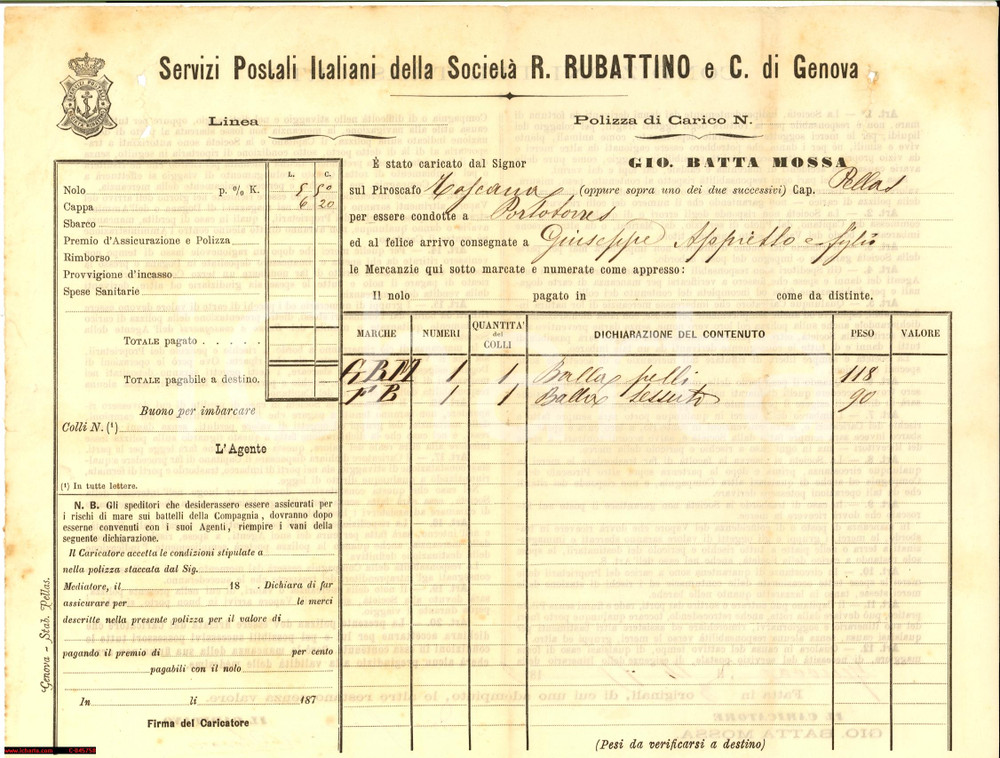 Servizi Postali Italiani della Società R. RUBATTINO e C. di Genova
Linea
Polizza di Carico N.
È stato caricato dal Signor GIO. BATTA MOSSA
sul Piroscafo Toscana (oppure sopra uno dei due successivi) Cap. Pellas
per essere condotte a Portotorres
ed al felice arrivo consegnate a Giuseppe e figlio
le Mercanzie qui sotto marcate e numerate come appresso:
Il nolo pagato in come da distinte.
L. C.
Nolo p. % K. 5 50
Cappa 6 20
Sbarco
Premio d'Assicurazione e Polizza
Rimborso
Provvigione d'incasso
Spese Sanitarie
TOTALE pagato
TOTALE pagabile a destino.
Buono per imbarcare
Colli N. (1)
L'Agente
(1) In tutte lettere.
N. B. Gli speditori che desiderassero essere assicurati per
i rischi di mare sui battelli della Compagnia, dovranno dopo
esserne convenuti con i suoi Agenti, riempire i vani della
seguente dichiarazione.
Il Caricatore accetta le condizioni stipulate a
nella polizza staccata dal Sig.
Mediatore, il 18 . Dichiara di far
assicurare per le merci
descritte nella presente polizza per il valore di
pagando il premio di per cento
pagabili con il nolo
In li 187
Firma del Caricatore
MARCHE NUMERI QUANTITA' del COLLI DICHIARAZIONE DEL CONTENUTO PESO VALORE
GBM 1 1 Balla pelli 118
FB 1 1 Balla tessuto 90
(Pesi da verificarsi a destino)
Genova - Stab. Pellas.
www.icharta.com